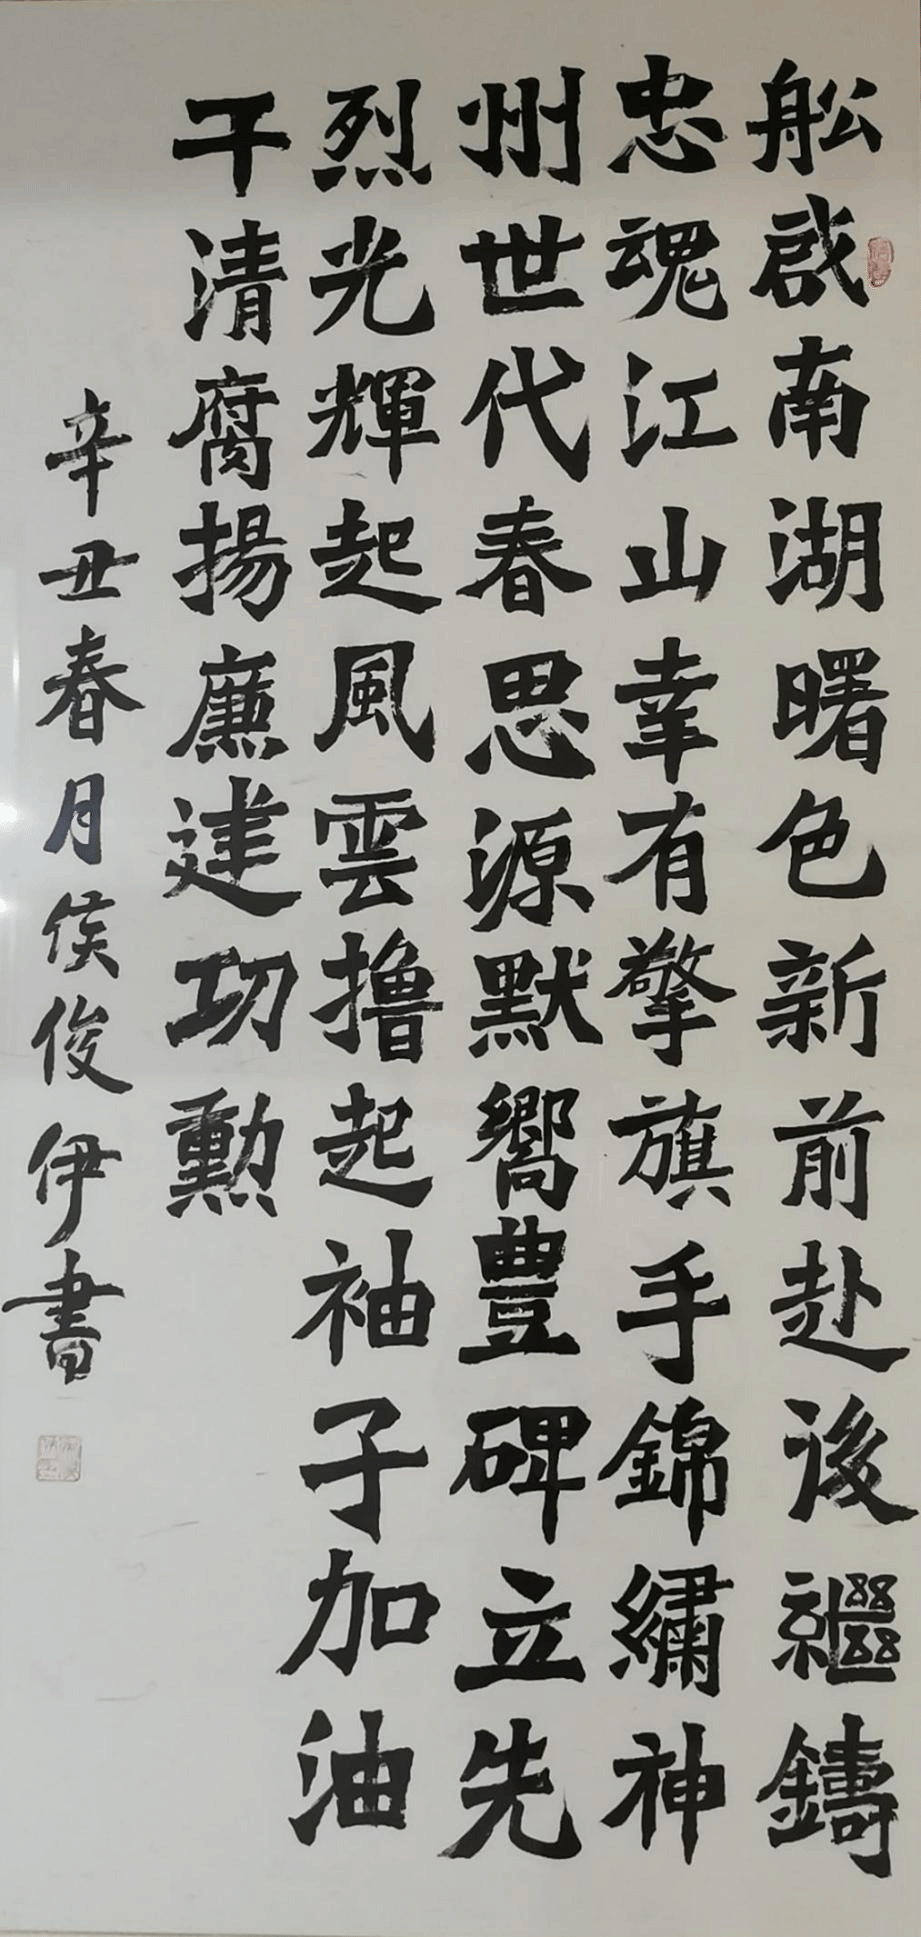 舩啟南湖曙色新前赴後繼鑄
忠魂江山幸有擎旗手錦繡神
州世代春思源默嚮豐碑立先
烈光輝起風雲撸起袖子加油
干清腐揚廉建功勳
辛丑春月侯俊伊書